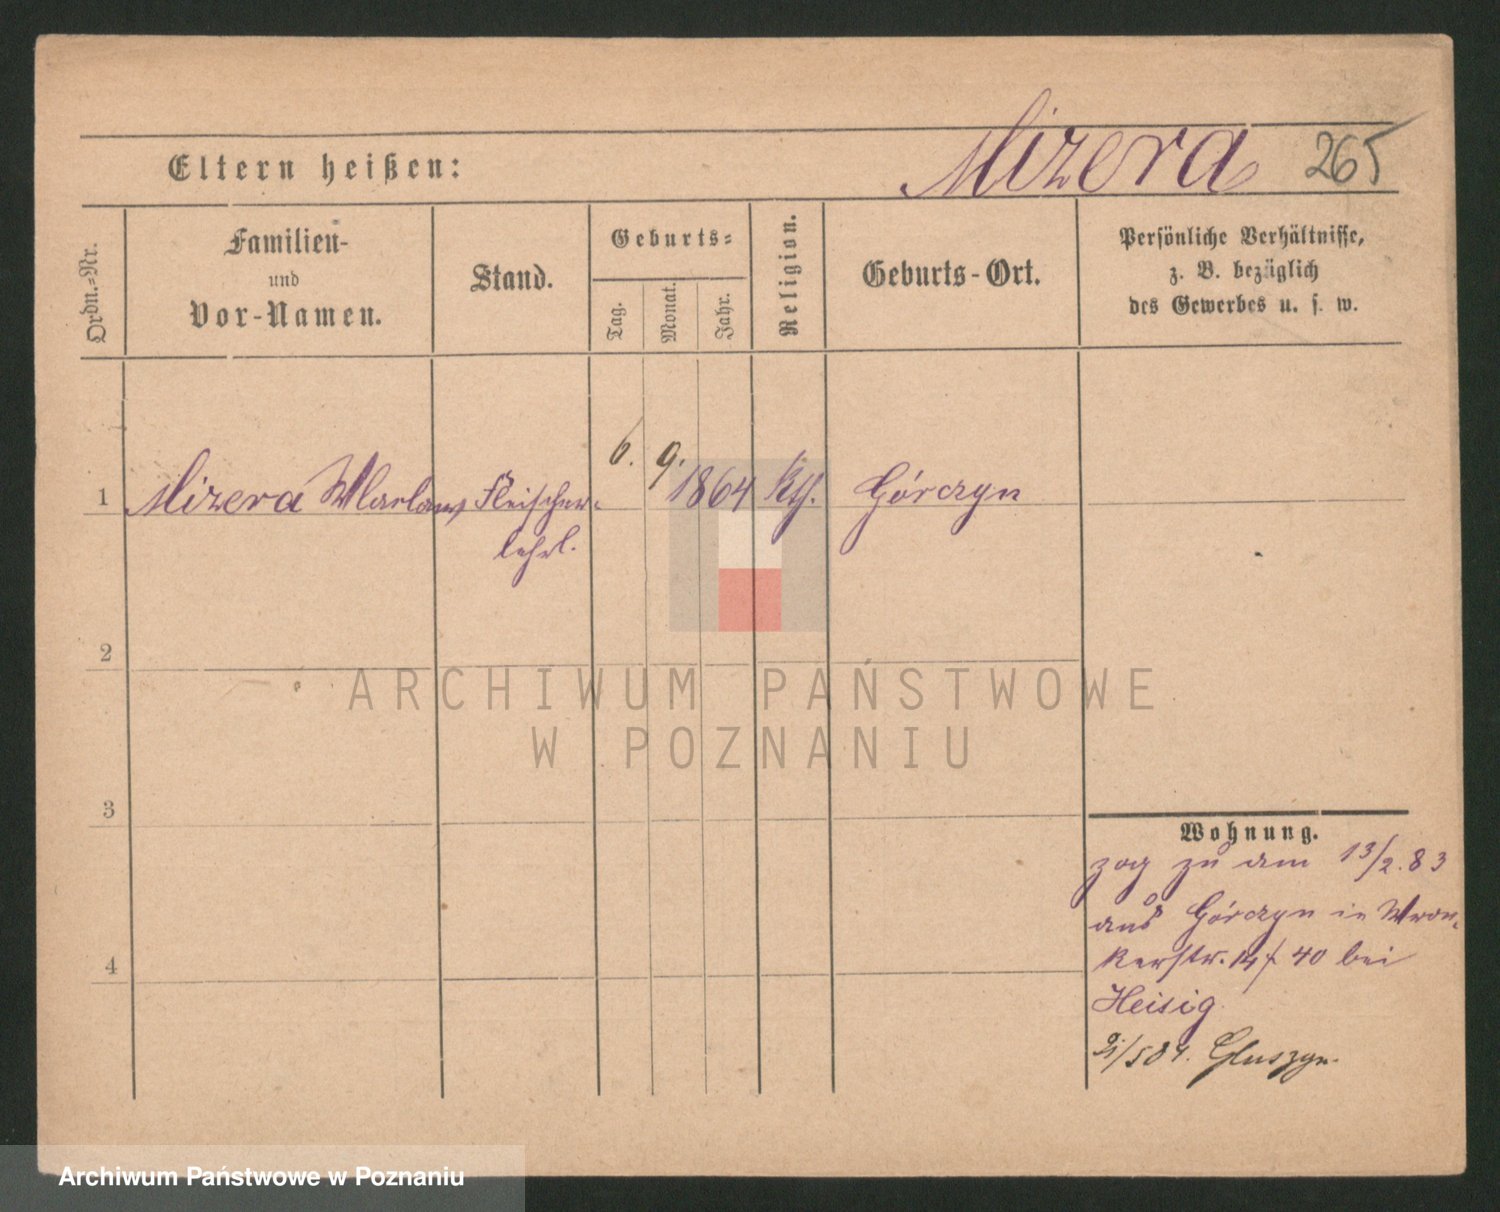 Mizera 265
Eltern heißen:
Ordn.-Nr.
Familien-
und
Vor-Namen.
Stand.
Geburts-
Tag.
Monat.
Jahr.
Religion.
Geburts-Ort.
Persönliche Verhältnisse,
z. B. bezüglich
des Gewerbes u. s. w.
1 Mizera Wlaclaw Fleischer- 6. 9. 1864 kth. Górczyn
lehrl.
2
3
4
Wohnung.
zog zu am 13/2. 83
aus Górczyn in Wron-
kerstr. 40 bei
Heisig
Gluszyn.
ARCHIWUM PAŃSTWOWE
W POZNANIU
Archiwum Państwowe w Poznaniu